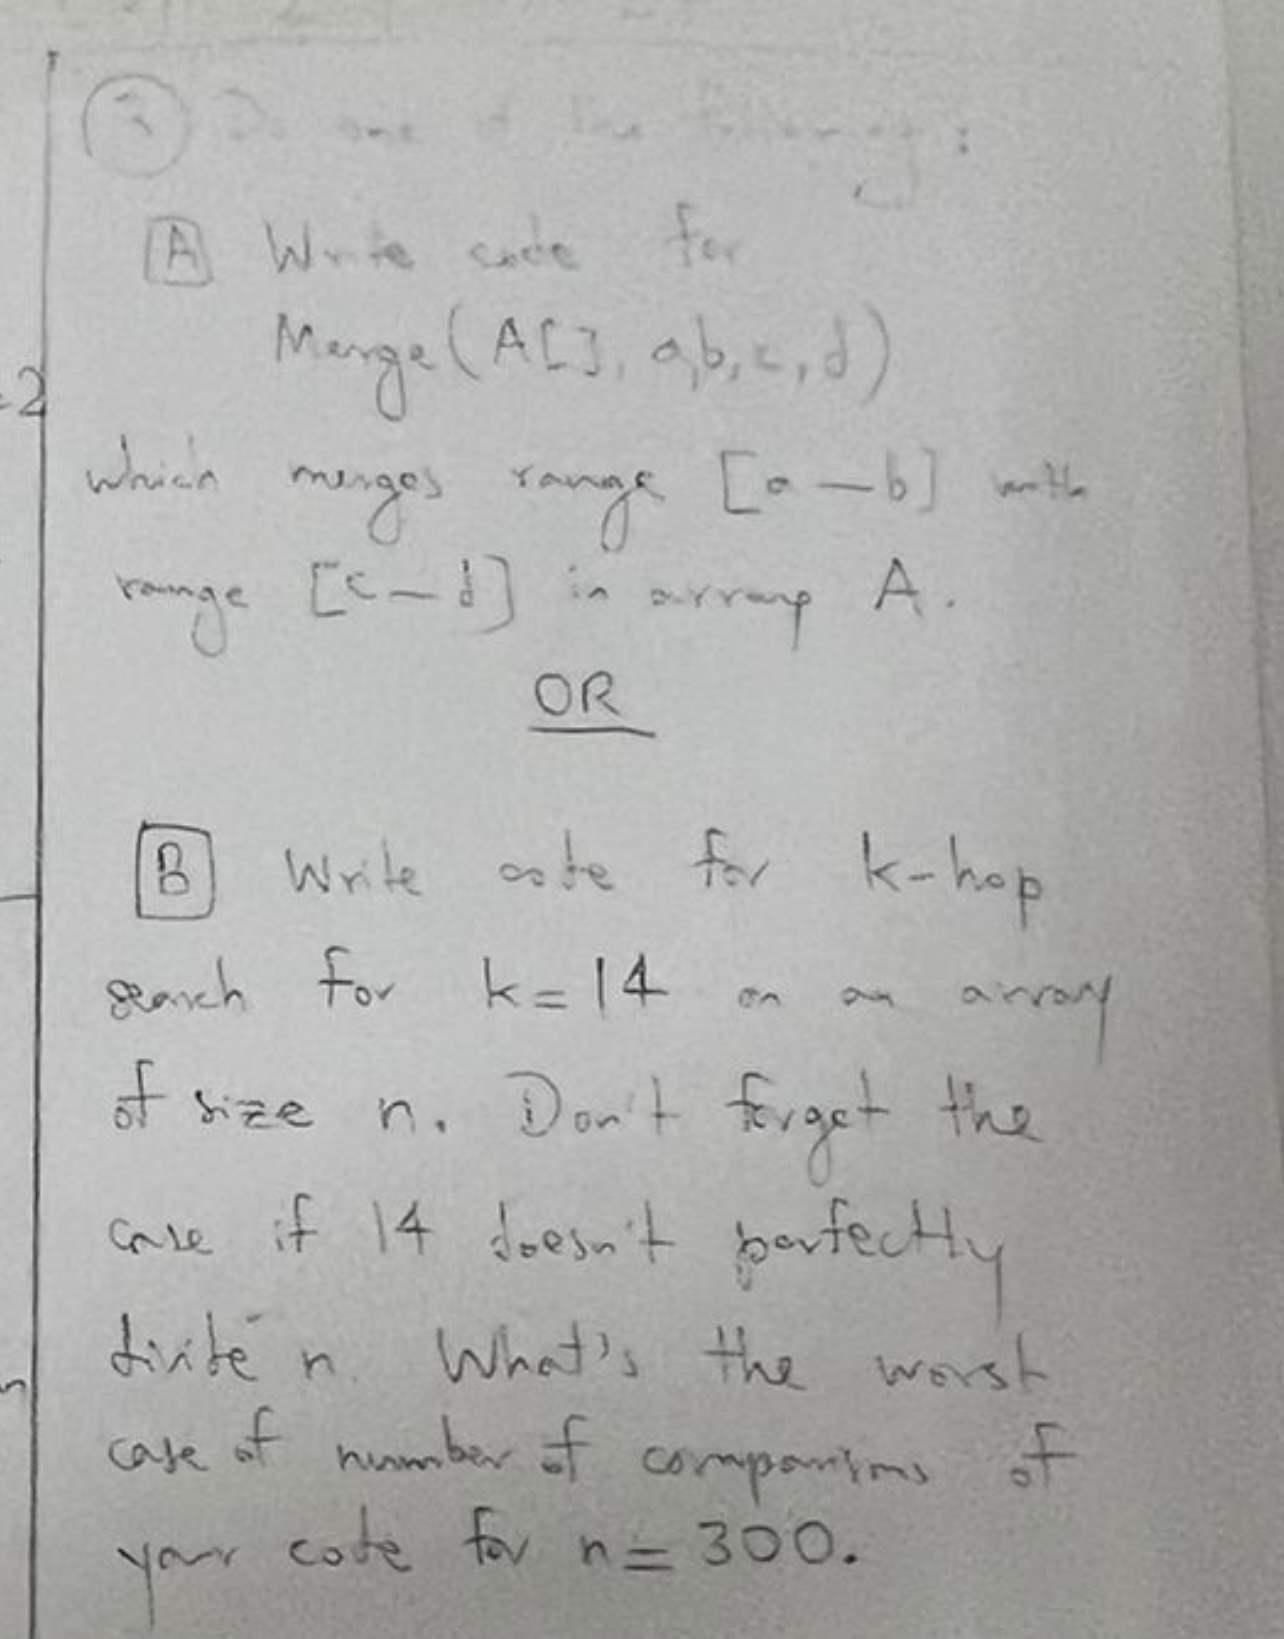 Do one of the following:
A Write code for
Merge(A[], a,b,c,d)
which merges range [a-b] with
range [c-d] in array A.
OR
B Write code for k-hop
search for k=14 on an array
of size n. Don't forget the
case if 14 doesn't perfectly
divide n. What's the worst
case of number of comparisons of
your code for n=300.